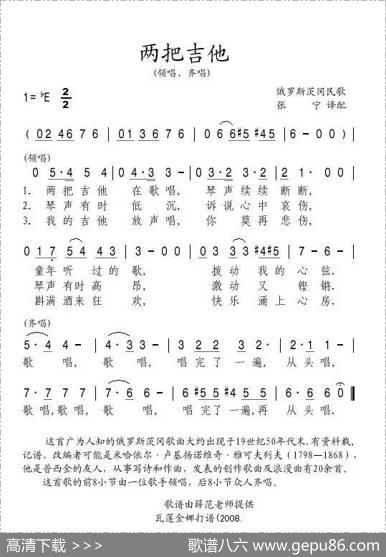 两把吉他
(领唱、齐唱)
1=♭E 2/2
俄罗斯茨冈民歌
张 宁 译配
( 02 46 7 6 | 01 36 7 6 | 0 6 6 #5 #4 5 | 6 - 0 0 ) |
(领唱)
0 5·4 5 4 | 0 4·3 3 - | 0 3·2 3 3 | 2 1 0 0 |
1. 两 把 吉 他 在 歌 唱, 琴 声 续 续 断 断,
2. 琴 声 有 时 低 沉, 诉 说 心 中 哀 伤,
3. 我 的 吉 他 放 声 唱, 你 莫 再 悲 伤,
0 1 7 5 4 4 3 | 3 - 0 0 | 0 3 3 3 #4 #5 | 7 - 6 - |
童 年 听 过 的 歌, 拨 动 我 的 心 弦.
琴 声 有 时 高 昂, 激 动 又 铿 锵.
斟 满 酒 来 狂 欢, 快 乐 涌 上 心 房.
(齐唱)
5·4 4 - | 4·3 3 - | 3·2 3 4 3 | 2 - 1 - |
歌 唱, 歌 唱, 唱 完 了 一 遍, 从 头 唱,
7·7 7 6 | 7·7 7 6 | 6 #5 #4 5 #4 5 | 6·6 6 0 ‖
歌 唱,歌 唱, 歌 唱, 唱 完 了 一 遍,再 从 头 唱.
这首广为人知的俄罗斯茨冈歌曲大约出现于19世纪50年代末。有资料载,
记谱、改编者可能是米哈依尔·卢基扬诺维奇·雅可夫列夫(1798—1868),
他是普西金的友人,从事写诗和作曲,发表的创作歌曲及浪漫曲有20余首。
这首歌的前8小节由一位歌手领唱,后8小节众人齐唱。
歌谱由薛范老师提供
瓦莲金娜打谱(2008.
高清下载 >>> 歌谱八六 www.gepu86.com